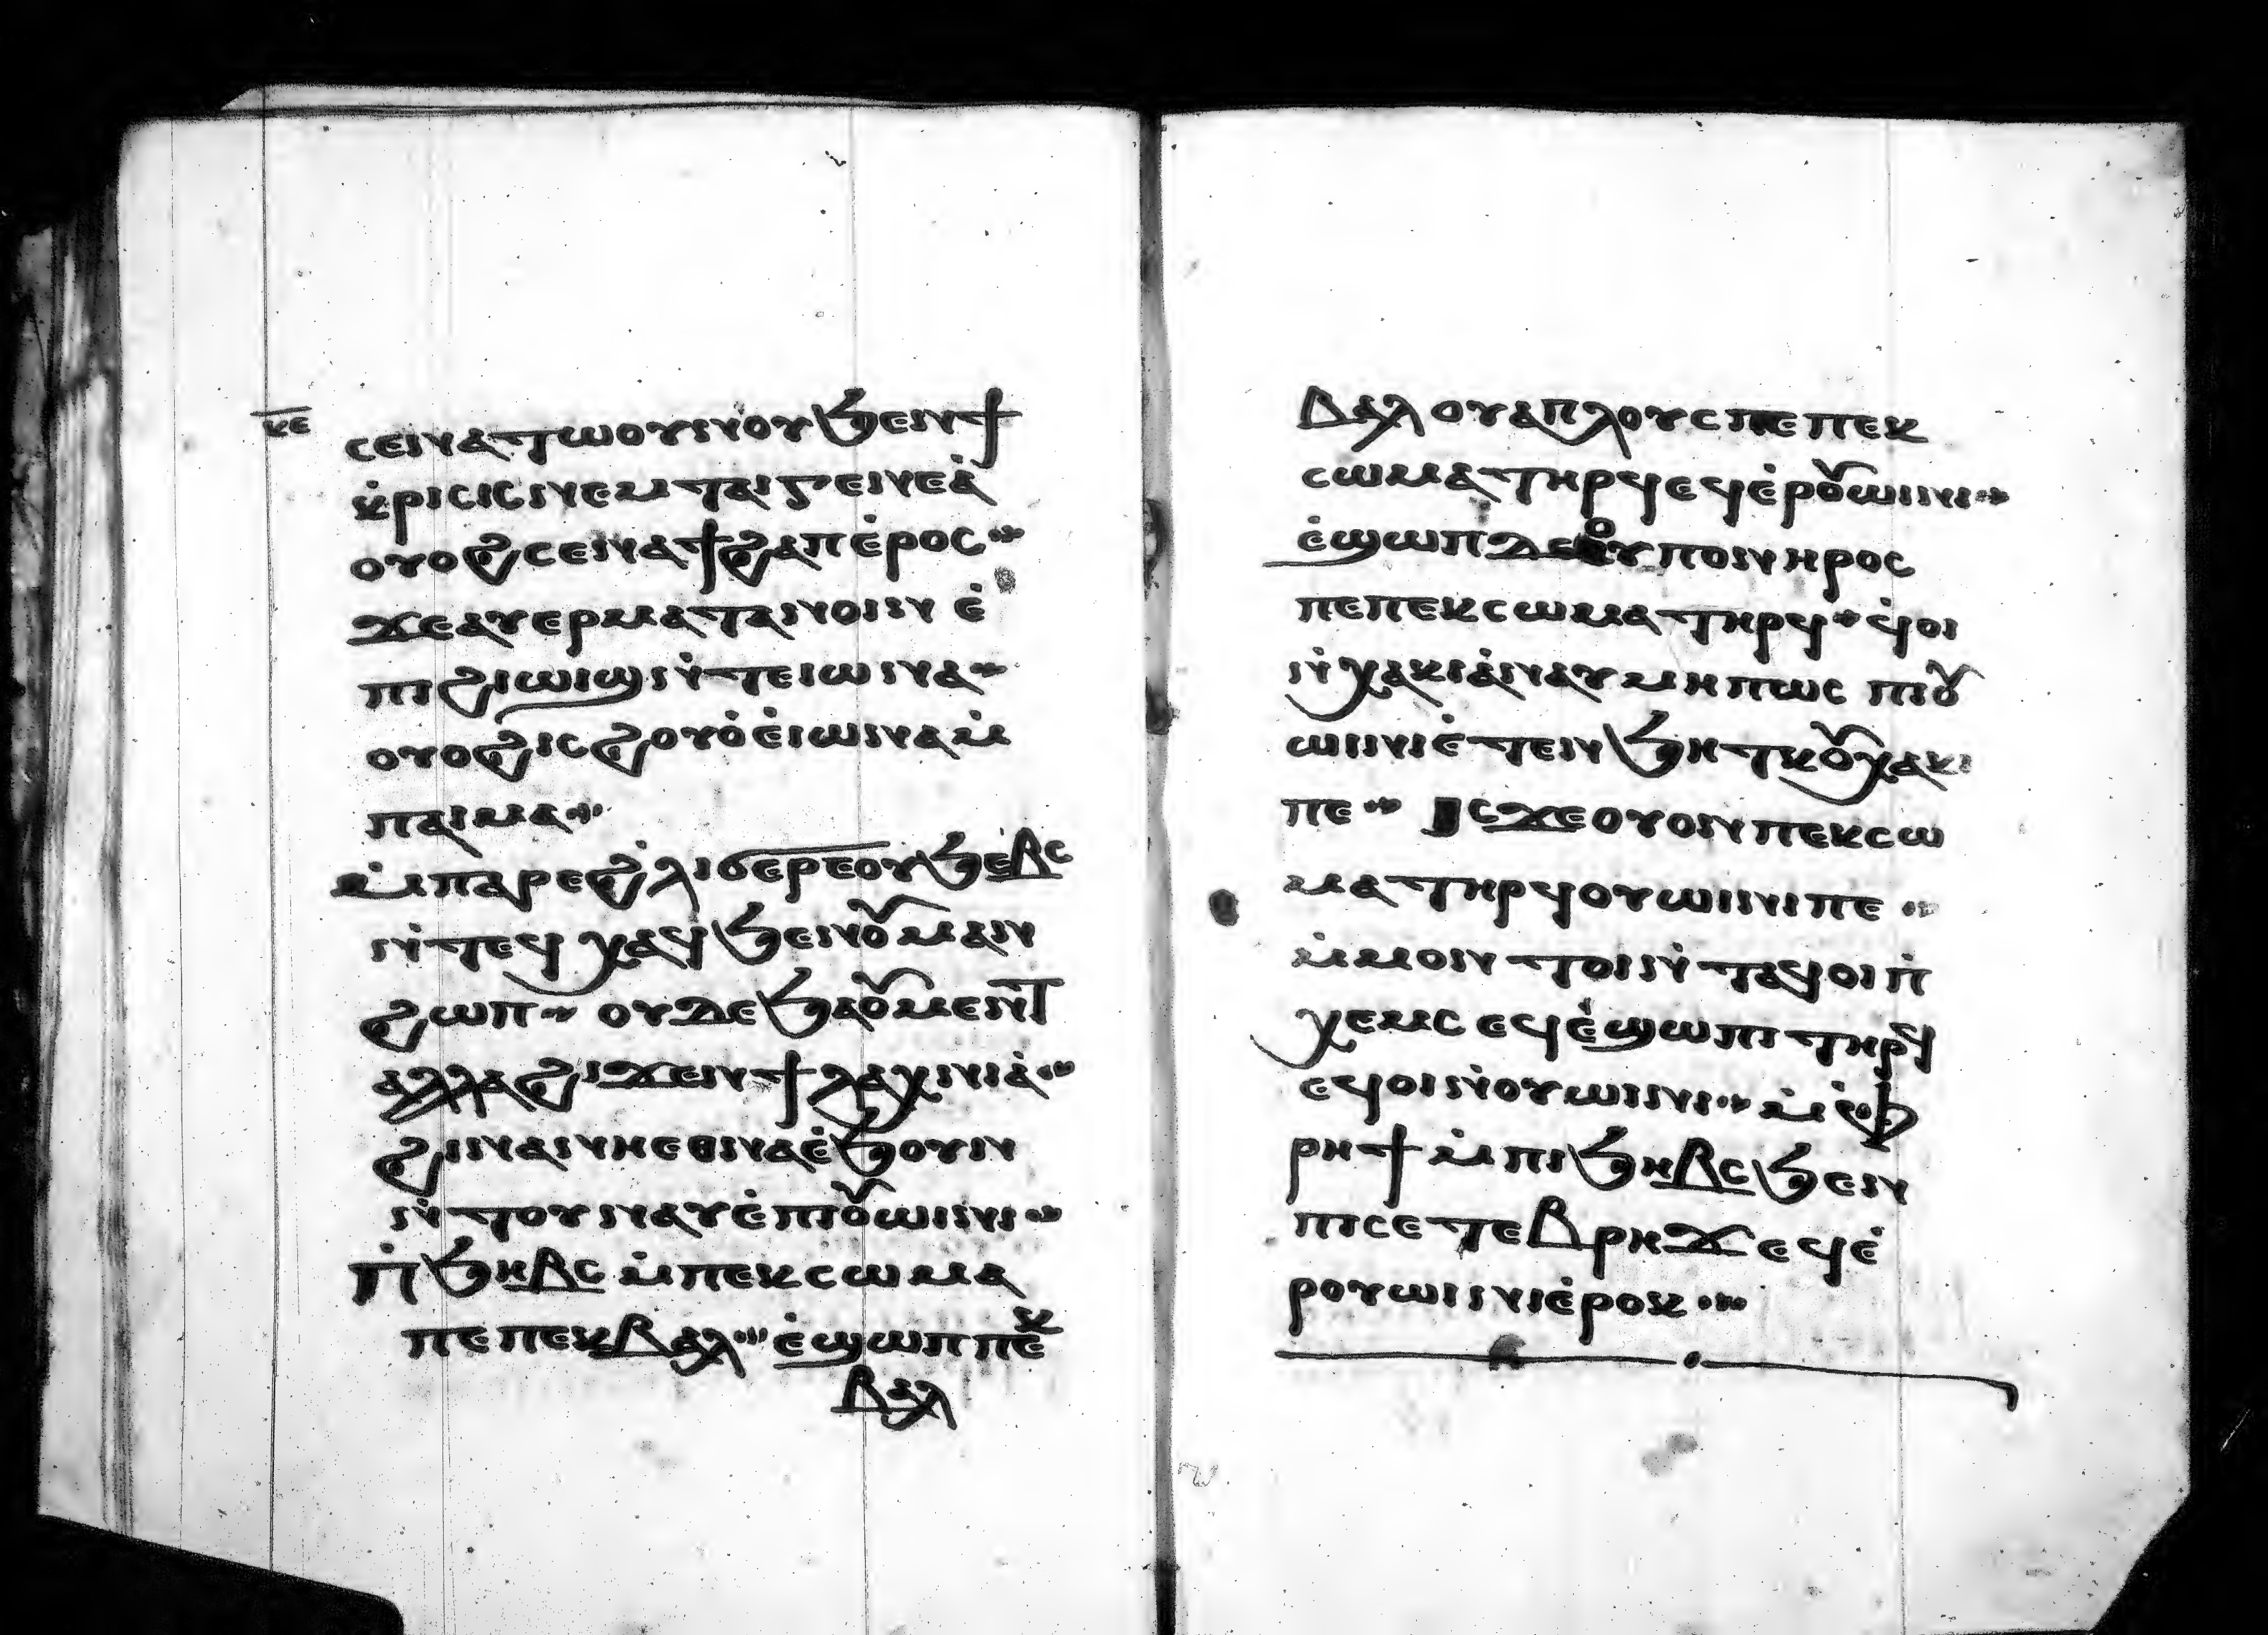 ⲕ̅ⲉ̅
ⲥⲉⲛⲁⲧⲱⲟⲩⲛⲟⲩϧⲉⲛϯ
ⲕ̇ⲣⲓⲥⲓⲥⲛⲉⲙⲧⲁⲓⲅⲉⲛⲉⲁ̇
ⲟⲩⲟϩⲥⲉⲛⲁϯϩⲁⲡⲉ̇ⲣⲟⲥ
ϫⲉⲁⲩⲉⲣⲙⲁⲧⲁⲛⲟⲓⲛ ⲉ̇
ⲡⲓϩⲓⲱⲓϣⲛ̇ⲧⲉⲓⲱⲛⲁ
ⲟⲩⲟϩⲓⲥϩⲟⲩⲟ̇ⲉ̇ⲓⲱⲛⲁⲙ̇
ⲡⲁⲓⲙⲁ
ⲙ̇ⲡⲁⲣⲉϩ̇ⲗⲓϭⲉⲣⲉⲟⲩϧⲉⲃⲥ
ⲛ̇ⲧⲉϥ ⲭⲁϥϧⲉⲛⲟⲩⲙⲁⲛ
ϩⲱⲡ ⲟⲩⲇⲉϧⲁⲟⲩⲙⲉⲛⲧ
ⲁⲗⲗⲁϩⲓϫⲉⲛϯⲗⲩⲭⲛⲓⲁ̇
ϩⲓⲛⲁⲛⲏⲉⲑⲛⲁⲉ̇ϧⲟⲩⲛ
ⲛ̇ⲧⲟⲩⲛⲁⲩⲉ̇ⲡⲓⲟⲩⲱⲓⲛⲓ
ⲡ̇ϧⲏⲃⲥ ⲙ̇ⲡⲉⲕⲥⲱⲙⲁ
ⲡⲉⲡⲉⲕⲃⲁⲗ ⲉ̇ϣⲱⲡⲡⲉⲕ
ⲃⲁⲗ
ⲃⲁⲗ ⲟⲩⲁⲡⲗⲟⲩⲥⲡⲉⲡⲉⲕ
ⲥⲱⲙⲁⲧⲏⲣϥⲉϥⲉ̇ⲣⲟⲩⲱⲓⲛⲓ
ⲉ̇ϣⲱⲡⲇⲉⲟⲩⲡⲟⲛⲏⲣⲟⲥ
ⲡⲉⲡⲉⲕⲥⲱⲙⲁⲧⲏⲣϥ ϥ̇ⲟⲓ
ⲛ̇ⲭⲁⲕⲓⲁ̇ⲛⲁⲩⲙⲏⲡⲱⲥ ⲡⲓⲟⲩ
ⲱⲓⲛⲓⲉ̇ⲧⲉⲛϧⲏⲧⲕⲟⲩⲭⲁⲕⲓ
ⲡⲉ ⲓⲥϫⲉⲟⲩⲟⲛⲡⲉⲕⲥⲱ
ⲙⲁⲧⲏⲣϥⲟⲩⲱⲓⲛⲓⲡⲉ
ⲙ̇ⲙⲟⲛ ⲧⲟⲓⲛ̇ⲧⲁϥⲟⲓⲛ̇
ⲭⲉⲙⲥ ⲉϥⲉ̇ϣⲱⲡⲓ ⲧⲏⲣϥ
ⲉϥⲟⲓⲛ̇ⲟⲩⲱⲓⲛⲓ ⲙ̇ⲫ̇
ⲣⲏϯ ⲙ̇ⲡⲓϧⲏⲃⲥϧⲉⲛ
ⲡⲓⲥⲉⲧⲉⲃⲣⲏϫ ⲉϥⲉ̇
ⲣⲟⲩⲱⲓⲛⲓⲉ̇ⲣⲟⲕ